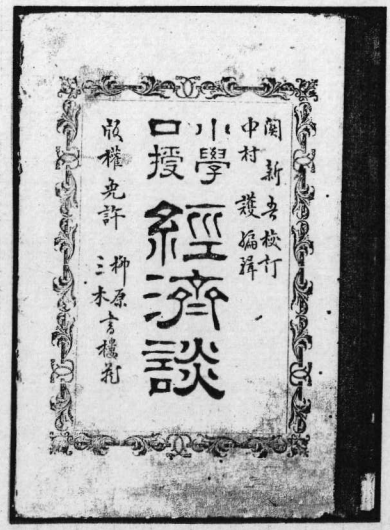 関新吾校訂
中村護編輯
小學
口授
經濟談
版權免許
柳原
三木書樓藏